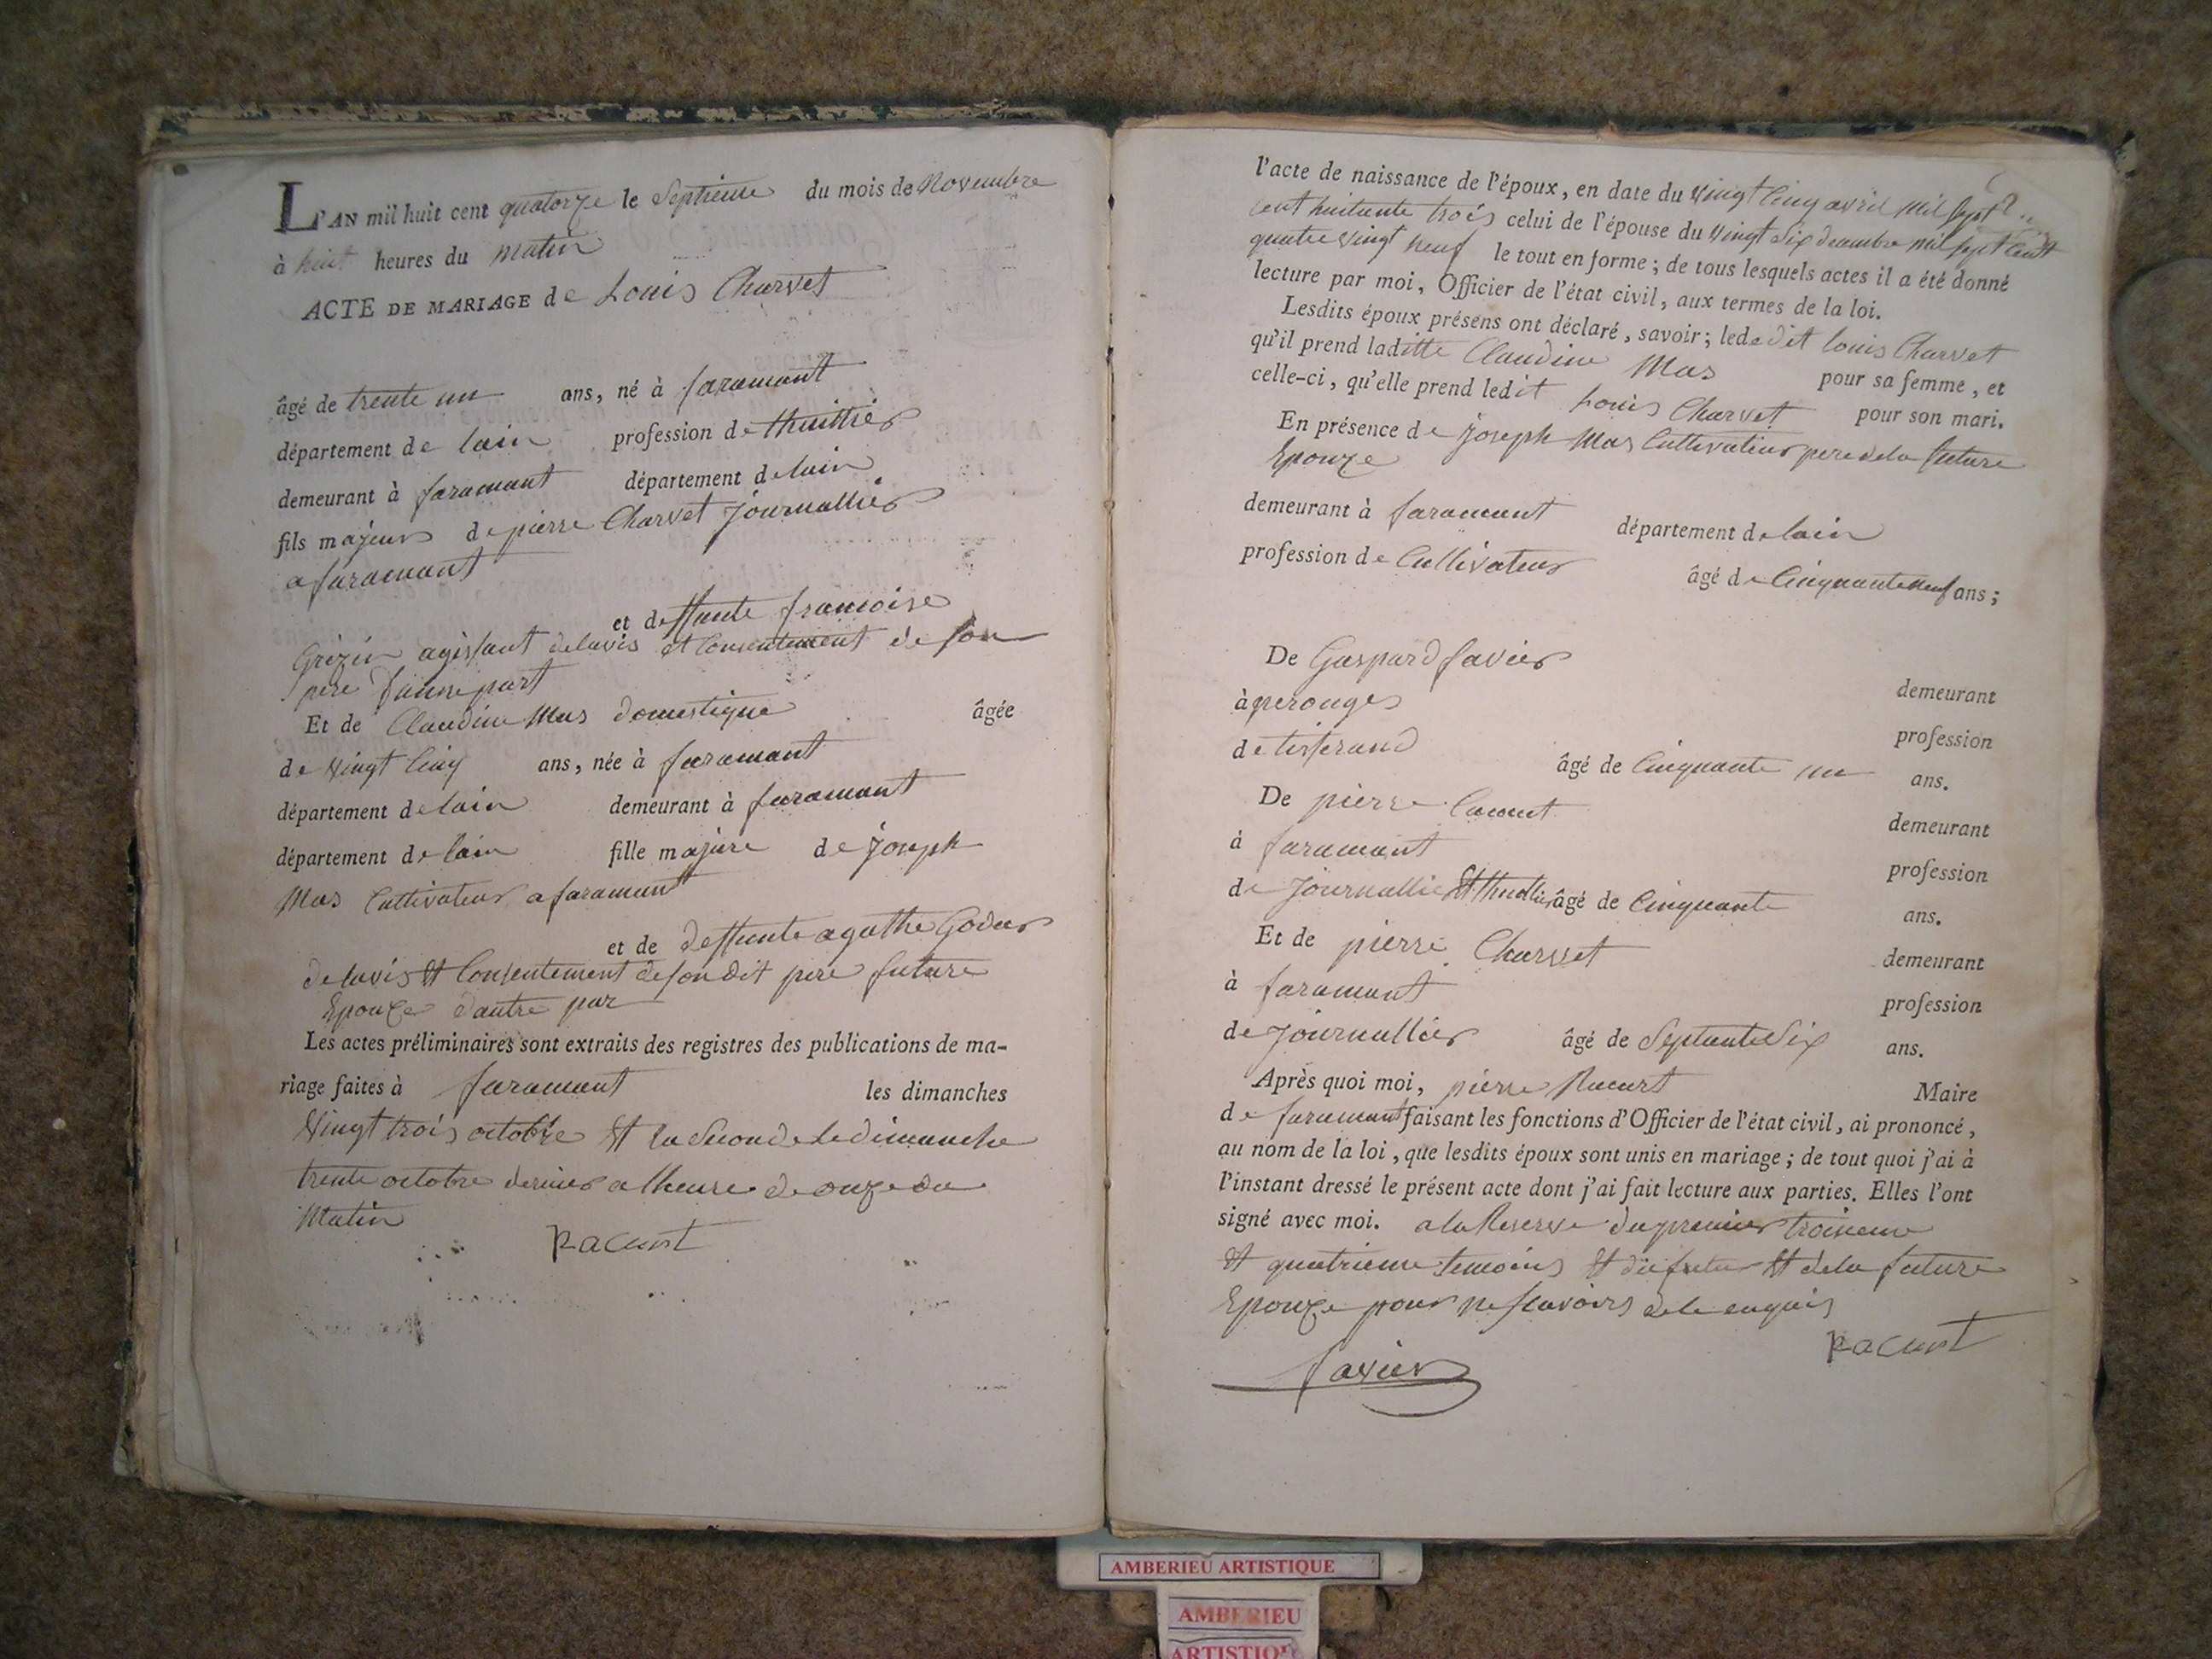 L'AN mil huit cent quatorze le Septieme du mois de Novembre
à huit heures du matin
ACTE DE MARIAGE de Louis Charvet
âgé de trente un ans, né à faramant
département de lain profession de thuillier
demeurant à faramant département de lain
fils majeur de pierre Charvet Journallier
a faramant
et de deffunte francoise
Grizin agissant de lavis et Consentement de son
pere d'une part
Et de Claudine Mas domestique âgée
de vingt Cinq ans, née à faramant
département de lain demeurant à faramant
département de lain fille majure de joseph
Mas Cultivateur a faramant
et de deffunte agathe Godar
de lavis et Consentement de son dit pere future
Epouze d'autre par
Les actes préliminaires sont extraits des registres des publications de ma-
riage faites à faramant les dimanches
Vingt trois octobre et la Seconde le dimanche
trente octobre dernier a lheure de onze du
Matin
Racurt
l'acte de naissance de l'époux, en date du vingt Cinq avril mil Sept
cent huitante trois celui de l'épouse du vingt Six decembre mil Sept Cent
quatre vingt neuf le tout en forme; de tous lesquels actes il a été donné
lecture par moi, Officier de l'état civil, aux termes de la loi.
Lesdits époux présens ont déclaré, savoir; lede dit louis Charvet
qu'il prend laditte Claudine Mas pour sa femme, et
celle-ci, qu'elle prend ledit Louis Charvet pour son mari.
En présence de Joseph Mas Cultivateur pere de la future
Epouze
demeurant à faramant département de lain
profession de Cultivateur âgé de Cinquante neuf ans;
De Gaspard favier demeurant
à perouges profession
de tisserand âgé de Cinquante un ans.
De pierre demeurant
à faramant profession
de Journallier et thuillier âgé de Cinquante ans.
Et de pierre Charvet demeurant
à faramant profession
de Journallier âgé de Septante Six ans.
Après quoi moi, pierre Racurt Maire
de faramant faisant les fonctions d'Officier de l'état civil, ai prononcé,
au nom de la loi, que lesdits époux sont unis en mariage; de tout quoi j'ai à
l'instant dressé le présent acte dont j'ai fait lecture aux parties. Elles l'ont
signé avec moi. a la Reserve du premier troisieme
et quatrieme temoins et du futur et de la future
Epouze pour ne scavoirs de le enquis
Racurt
favier
AMBERIEU ARTISTIQUE
AMBERIEU
ARTISTIQUE